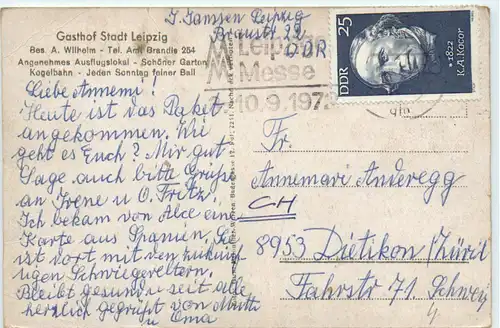 Gasthof Stadt Leipzig
Bes. A. Wilhelm - Tel. Amt Brandis 254
Angenehmes Ausflugslokal - Schöner Garten
Kegelbahn - Jeden Sonntag feiner Ball
Liebe Annemi!
Heute ist das Paket
angekommen. Wie
geht es Euch? Mir gut
Sage auch bitte Grüße
an Irene u. O. Fritz.
Ich bekam von Alce eine
Karte aus Spanien. Sie
ist dort mit den zukünf
tigen Schwiegereltern.
Bleibt gesund u. seit alle
herzlich gegrüßt von Mutti
u. Oma
I. Janssen Leipzig
Braustr. 22
DDR
Leipziger
Messe
10.9.1972
25
DDR
* 1822
K.A. Kocor
Fr.
Annemari Anderegg
CH
8953 Dietikon/Zürich
Fahrstr 71 Schweiz